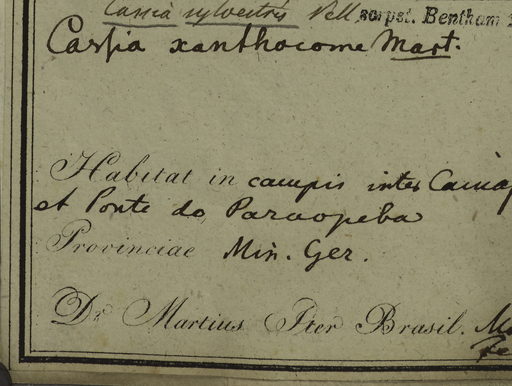 Cassia sylvestris Vell. scrpst. Bentham
Caſsia xanthocome Mart.
Habitat in campis inter
et Ponte do Paraopeba
Provinciae Min. Ger.
Dr. Martius Iter Brasil.